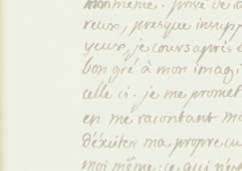 moi même. privé de
reux, presque insupp
yeux, je cours après c
bon gré à mon imagi
celle ci. je me promet
en me racontant mo
d'éxciter ma propre cu
moi même: ce qui n'est